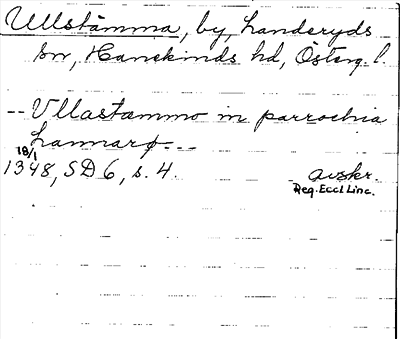 Ullstämma, by, Landeryds
sn, Hanekinds hd, Österg. l.
-- Vllastammo in parrochia
Lannarø- --
18/1
1348, SD 6, s. 4. avskr.
Reg. Eccl Linc.